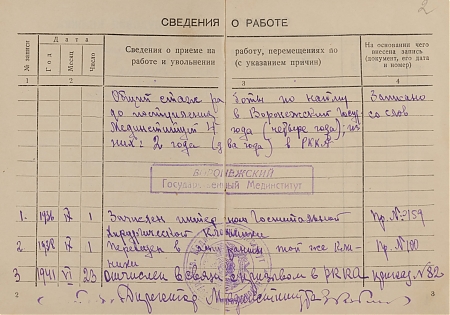 2
СВЕДЕНИЯ О РАБОТЕ
№ записи
Дата
Год
Месяц
Число
Сведения о приеме на работу, перемещениях по
работе и увольнении (с указанием причин)
На основании чего
внесена запись
(документ, его дата
и номер)
1 2 3 4
Общий стаж работы по найму Записано
до поступления в Воронежский со слов
Мединститут 4 года (четыре года), из
них: 2 года (два года) в РККА
ВОРОНЕЖСКИЙ
Государственный Мединститут
1. 1936 IX 1 Зачислен Госпитальной Пр. № 159
Хирургической Клиники
2. 1938 IX 1 Переведен в той же Кли- Пр. № 190
ники
3 1941 VI 23 Отчислен в связи с призывом в РККА приказ № 82
2 Директор Мединститута 3